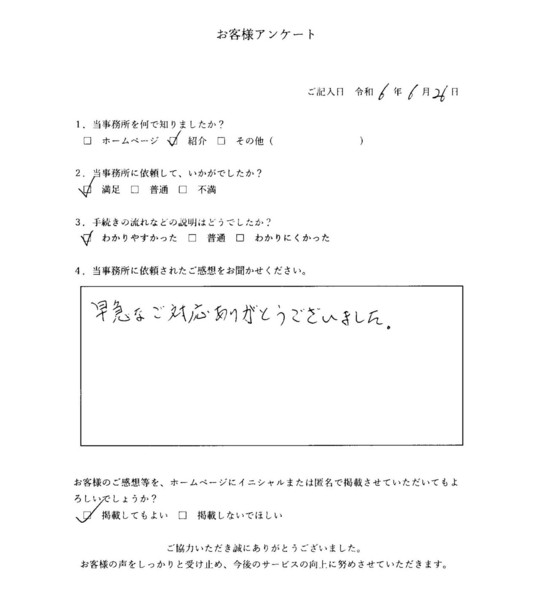 お客様アンケート
ご記入日　令和 6 年 6 月 26 日
1．当事務所を何で知りましたか？
□　ホームページ　☑　紹介　□　その他（　　　　　　　　）
2．当事務所に依頼して、いかがでしたか？
☑　満足　□　普通　□　不満
3．手続きの流れなどの説明はどうでしたか？
☑　わかりやすかった　□　普通　□　わかりにくかった
4．当事務所に依頼されたご感想をお聞かせください。
早急なご対応ありがとうございました。
お客様のご感想等を、ホームページにイニシャルまたは匿名で掲載させていただいてもよ
ろしいでしょうか？
☑　掲載してもよい　□　掲載しないでほしい
ご協力いただき誠にありがとうございました。
お客様の声をしっかりと受け止め、今後のサービスの向上に努めさせていただきます。